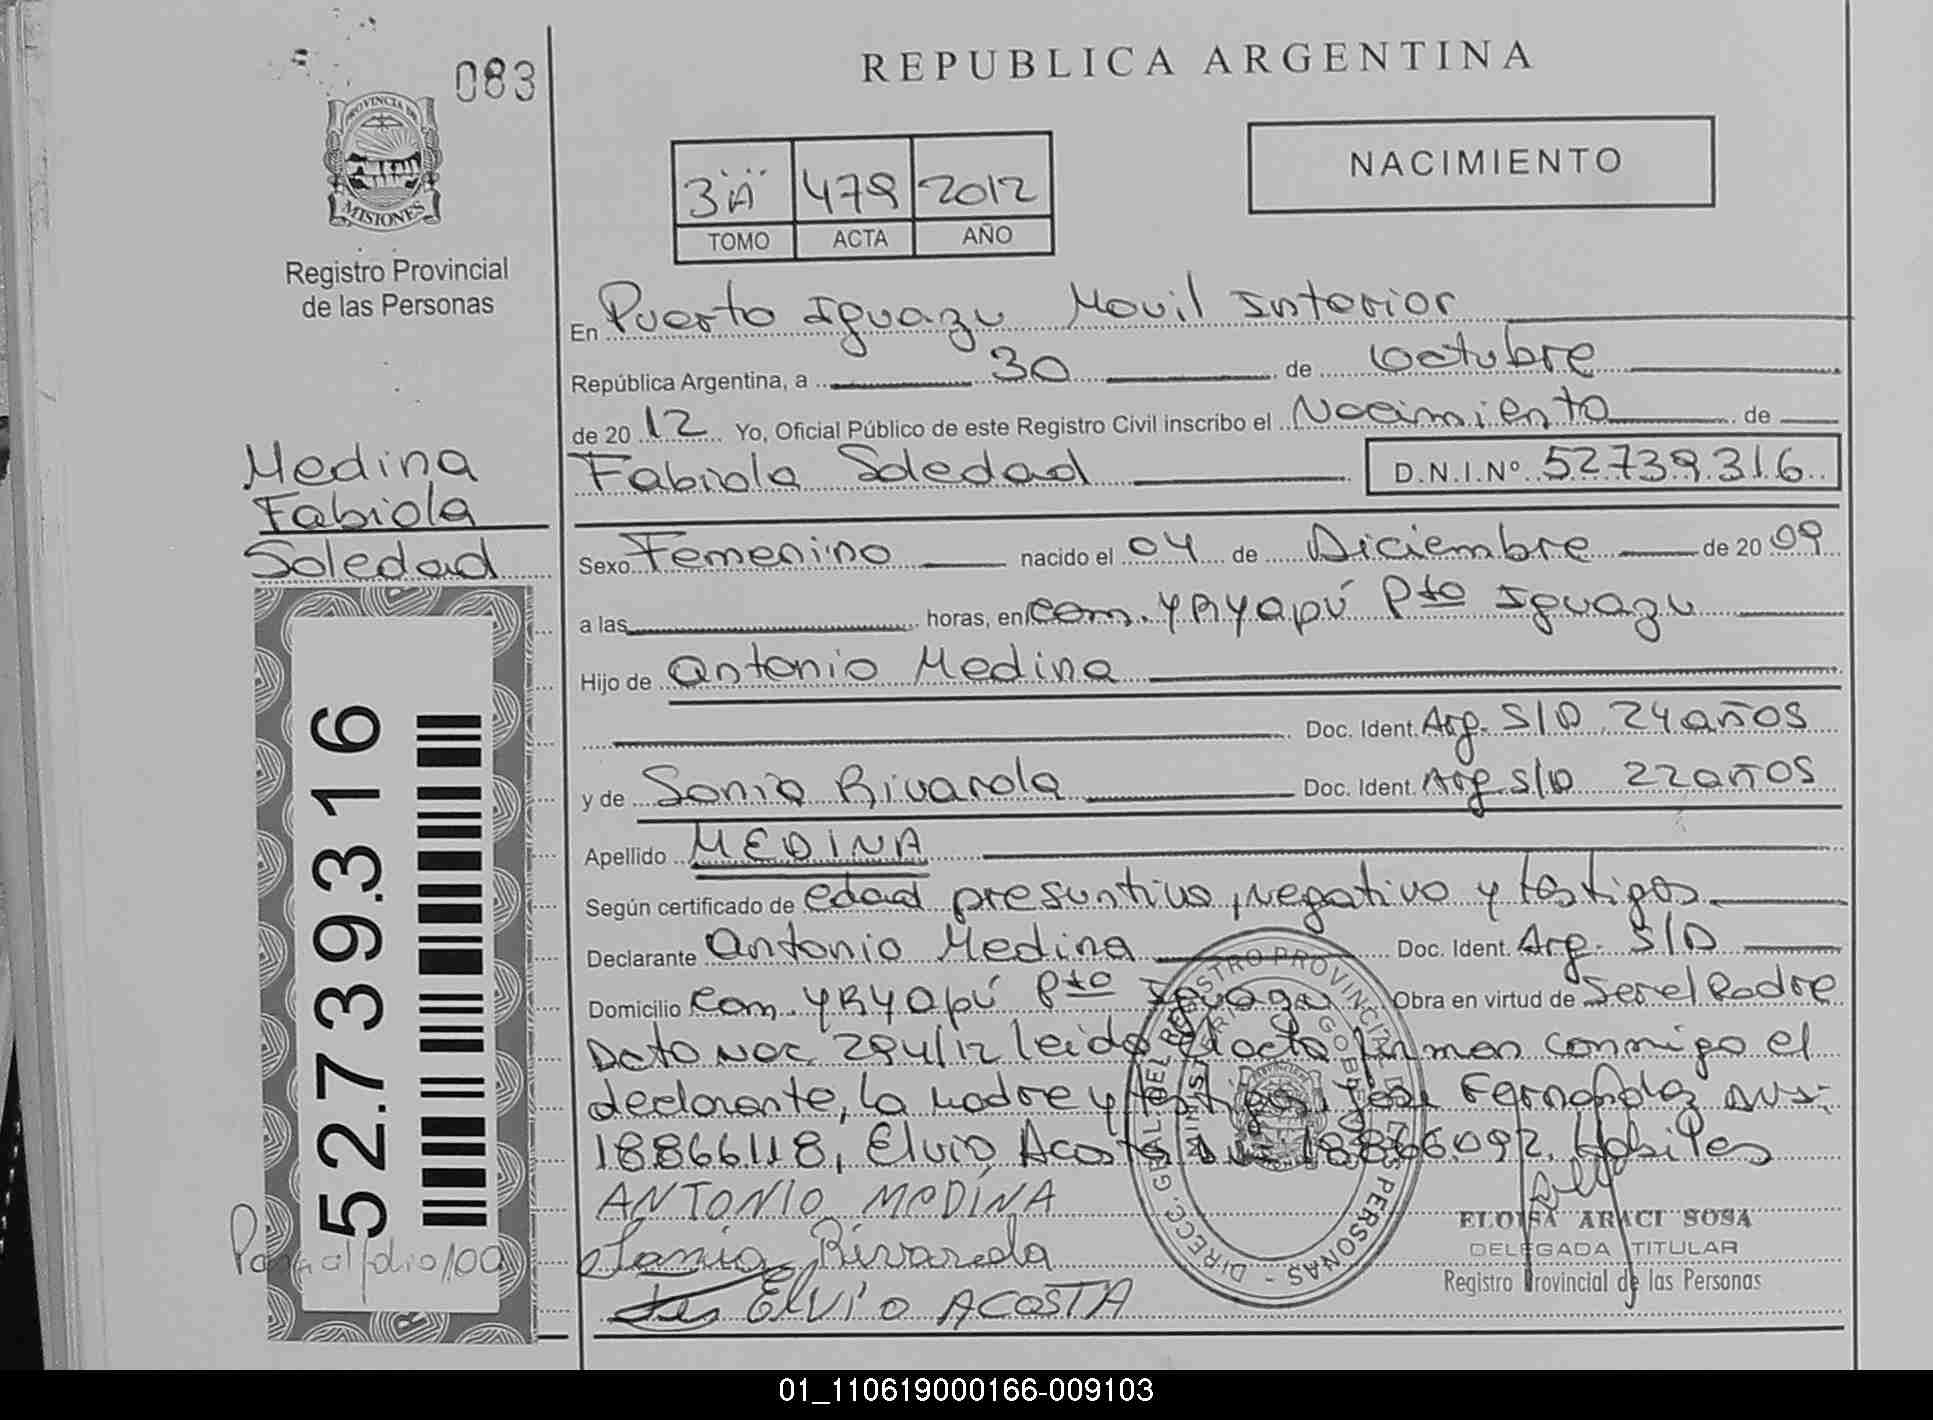 083
PROVINCIA DE
MISIONES
Registro Provincial
de las Personas
Medina
Fabiola
Soledad
52.739.316
REPUBLICA ARGENTINA
3 "A" 479 2012
TOMO ACTA AÑO
NACIMIENTO
En Puerto Iguazu Movil Interior
República Argentina, a 30 de Octubre
de 2012 Yo, Oficial Público de este Registro Civil inscribo el Nacimiento de
Fabiola Soledad D.N.I.Nº 52.739.316
Sexo Femenino nacido el 04 de Diciembre de 2009
a las horas, en Com. YRYapú Pto Iguazu
Hijo de Antonio Medina
Doc. Ident. Arg. S/D 24 años
y de Sonia Rivarola Doc. Ident. Arg S/D 22 años
Apellido MEDINA
Según certificado de edad presuntiva, negativo y testigos
Declarante Antonio Medina Doc. Ident. Arg. S/D
Domicilio Com. YRYapú Pto Iguazu Obra en virtud de ser el Padre
Dcto Nac 294/12 leida el acta firman conmigo el
declarante, la madre y testigos, José Fernandez DNI:
18866118, Elvio Acosta DNI 18866092, Habiles
ANTONIO MEDINA
Sonia Rivarola
ELVIO ACOSTA
ELOISA ARACI SOSA
DELEGADA TITULAR
Registro Provincial de las Personas
DIRECC. GRAL. DEL REGISTRO PROVINCIAL DE LAS PERSONAS
01_110619000166-009103